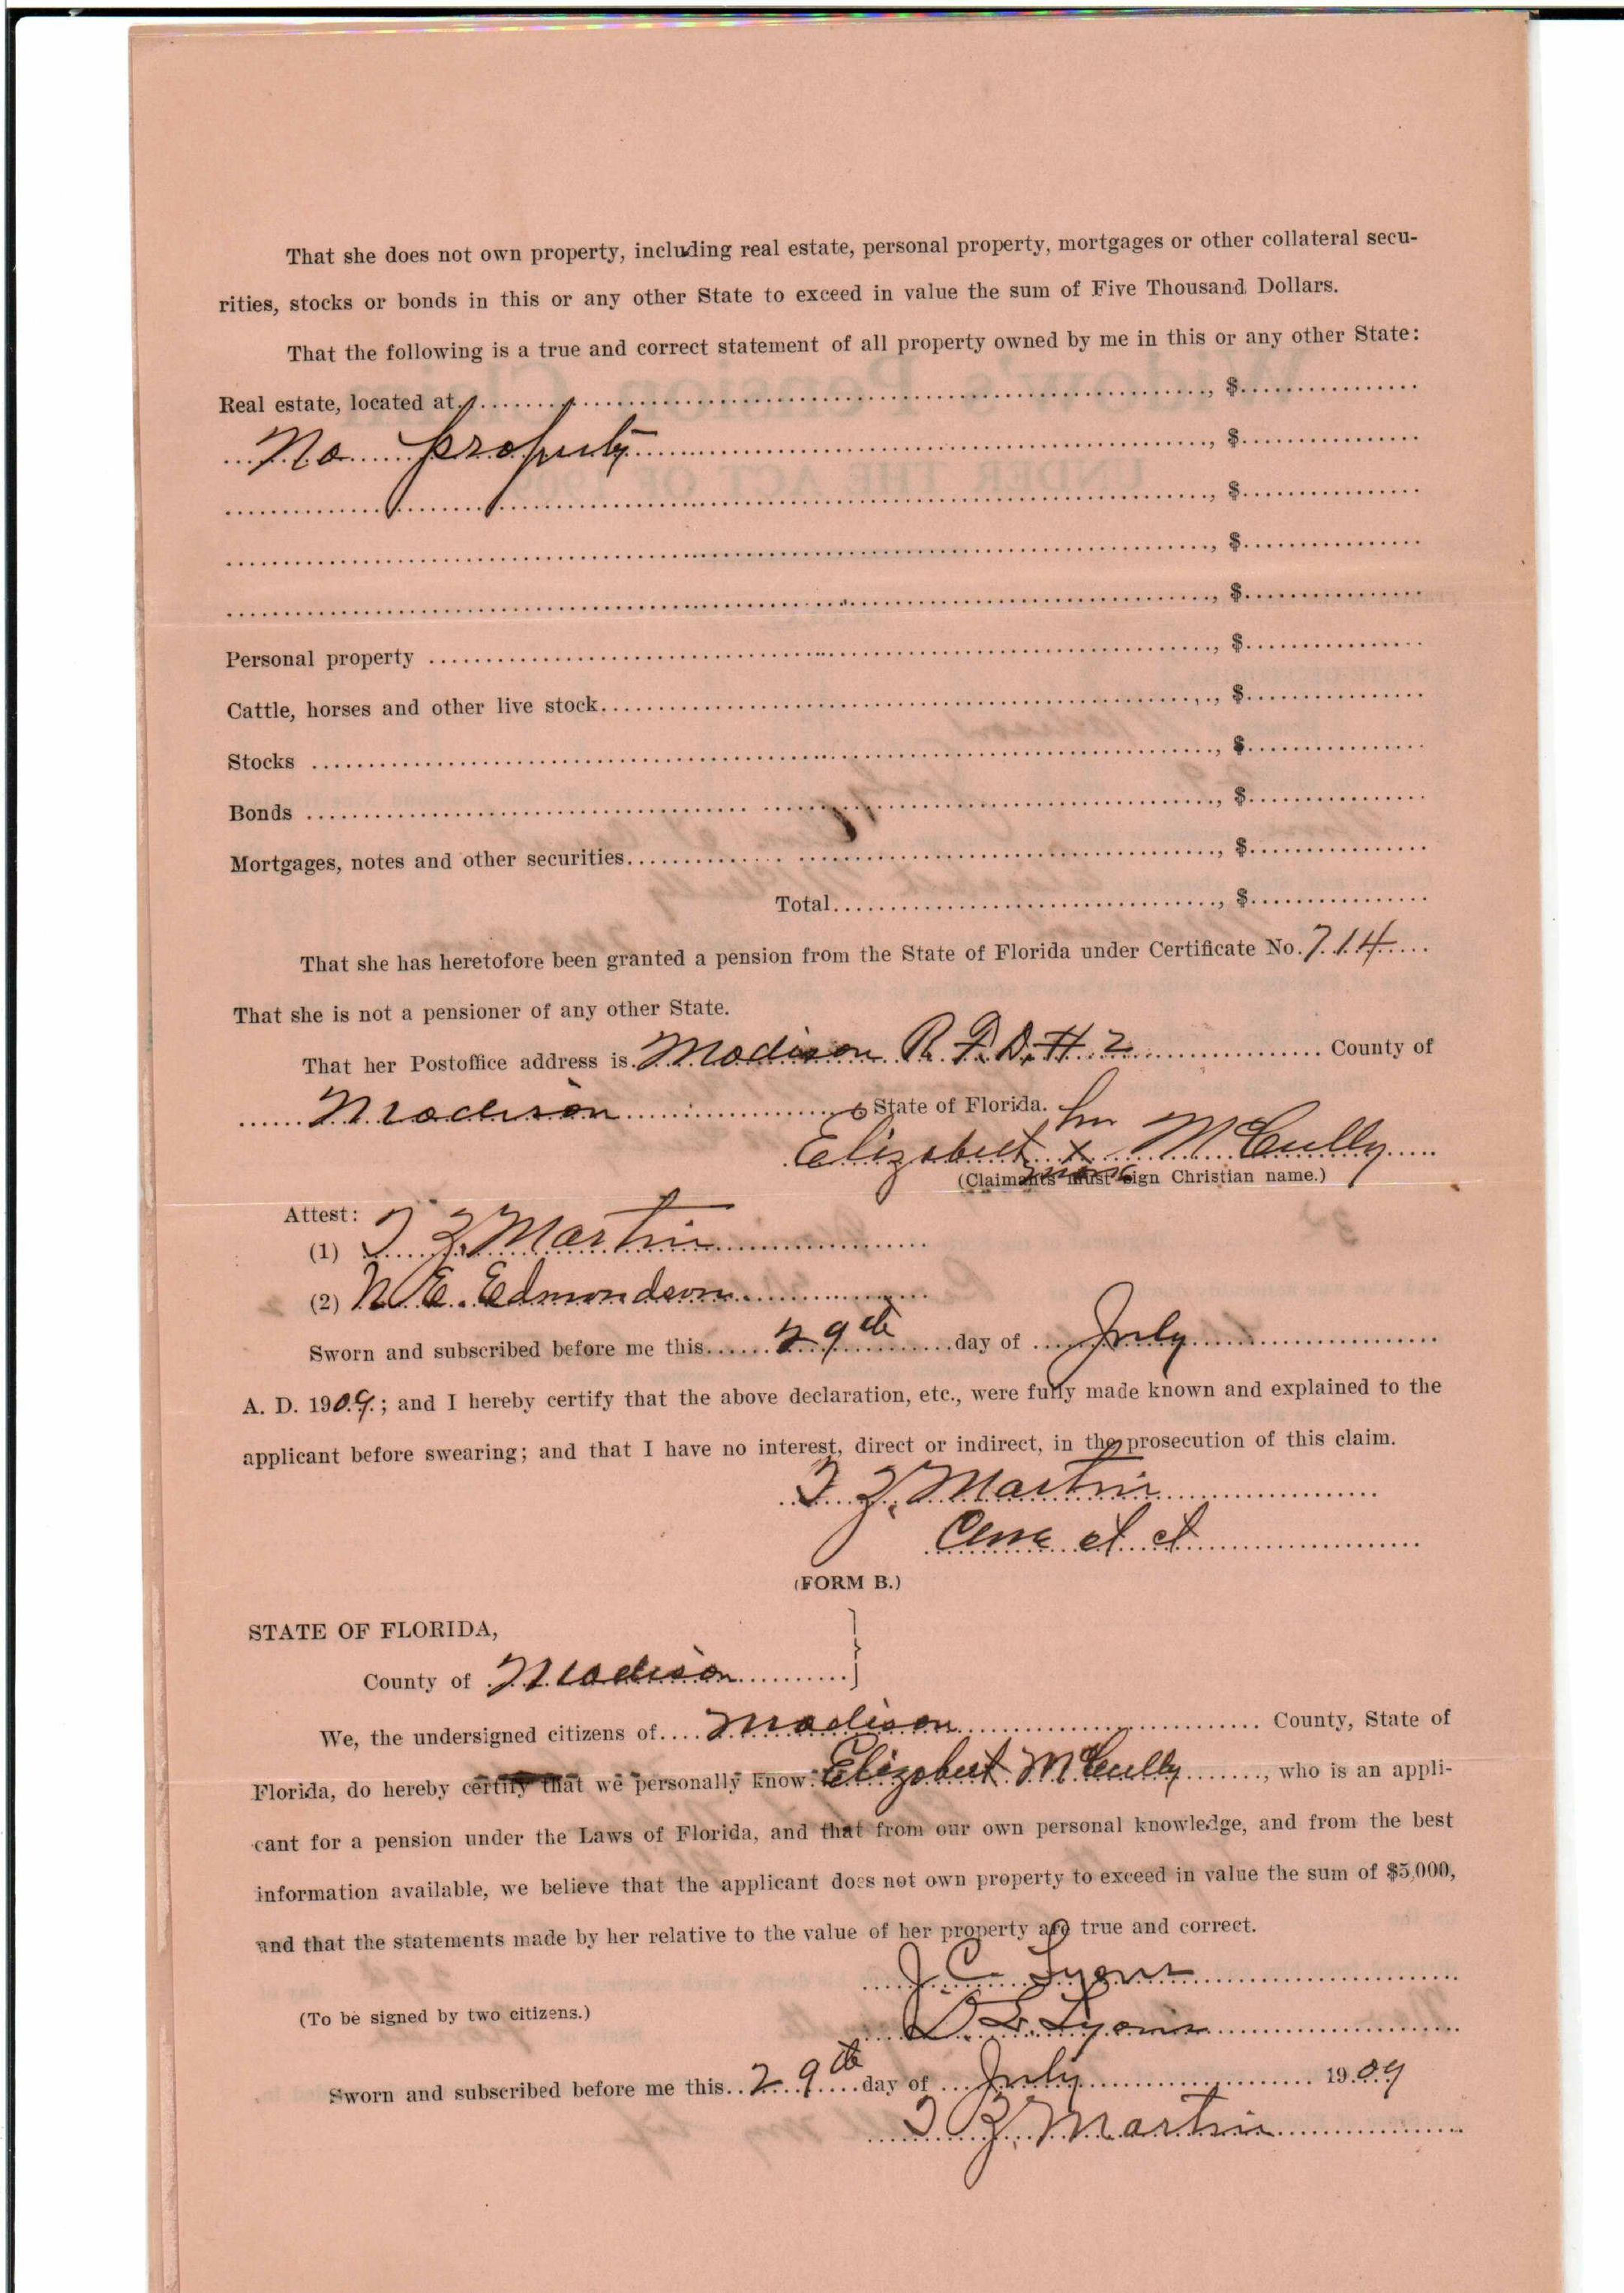 That she does not own property, including real estate, personal property, mortgages or other collateral secu-
rities, stocks or bonds in this or any other State to exceed in value the sum of Five Thousand Dollars.
That the following is a true and correct statement of all property owned by me in this or any other State:
Real estate, located at , $
No property , $
, $
, $
, $
Personal property , $
Cattle, horses and other live stock , $
Stocks , $
Bonds , $
Mortgages, notes and other securities , $
Total , $
That she has heretofore been granted a pension from the State of Florida under Certificate No. 714
That she is not a pensioner of any other State.
That her Postoffice address is Madison R. F. D. # 2 County of
Madison State of Florida.
her
Elizabeth x McCully
mark
(Claimants must sign Christian name.)
Attest:
(1) T Z Martin
(2) N E. Edmondson
Sworn and subscribed before me this 29th day of July
A. D. 1909; and I hereby certify that the above declaration, etc., were fully made known and explained to the
applicant before swearing; and that I have no interest, direct or indirect, in the prosecution of this claim.
T Z. Martin
(FORM B.)
STATE OF FLORIDA,
County of Madison
We, the undersigned citizens of Madison County, State of
Florida, do hereby certify that we personally know Elizabeth McCully, who is an appli-
cant for a pension under the Laws of Florida, and that from our own personal knowledge, and from the best
information available, we believe that the applicant does not own property to exceed in value the sum of $5,000,
and that the statements made by her relative to the value of her property are true and correct.
J. C. Lyons
(To be signed by two citizens.)
D. L. Lyons
Sworn and subscribed before me this 29th day of July 1909
T Z. Martin